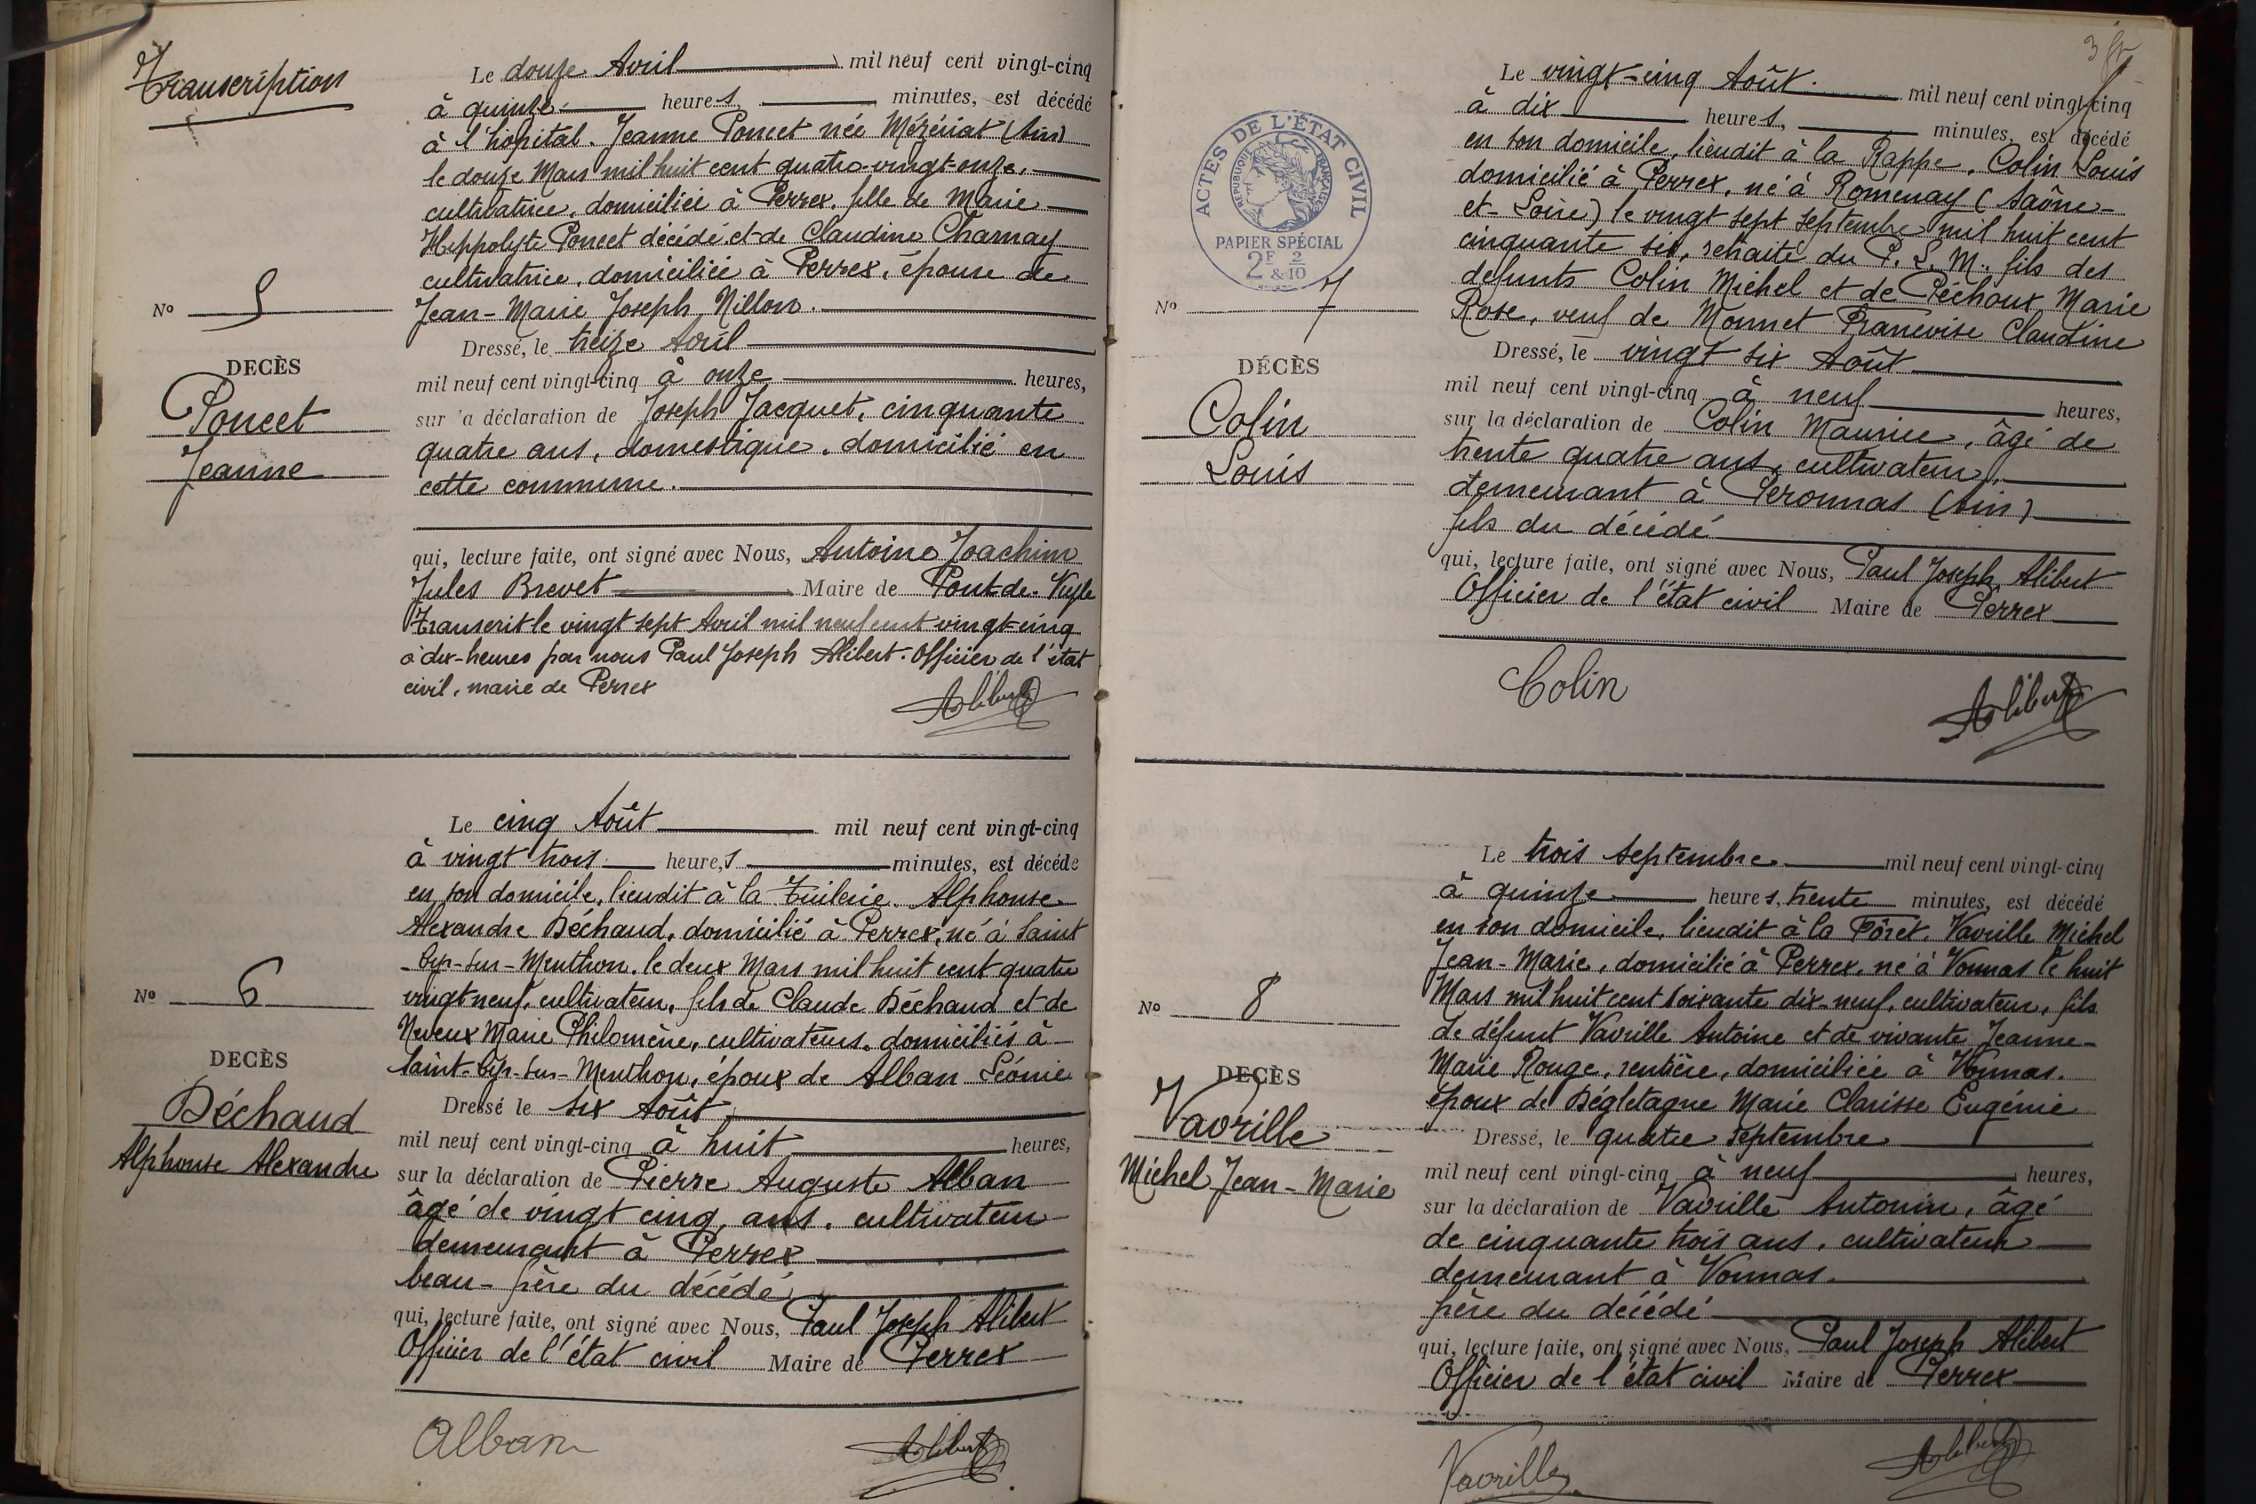 Transcription
Le douze Avril mil neuf cent vingt-cinq
à quinze heures, minutes, est décédé
à l'hopital. Jeanne Poncet née Mézériat (Ain)
le douze Mars mil huit cent quatre-vingt-onze,
cultivatrice, domiciliée à Perrex, fille de Marie
Hippolyte Poncet décédé et de Claudine Charnay
cultivatrice, domiciliée à Perrex, épouse de
Jean-Marie Joseph Nillon.
Nº 5
Dressé, le treize Avril
DECÈS
mil neuf cent vingt-cinq à onze heures,
Poncet
Jeanne
sur la déclaration de Joseph Jacquet, cinquante
quatre ans, domestique, domicilié en
cette commune.
qui, lecture faite, ont signé avec Nous, Antoine Joachim
Jules Brevet Maire de Pont-de-Veyle
Transcrit le vingt sept Avril mil neuf cent vingt-cinq
à dix-heures par nous Paul Joseph Alibert. Officier de l'état
civil, maire de Perrex
Alibert
Le cinq Août mil neuf cent vingt-cinq
à vingt trois heures, minutes, est décédé
en son domicile, lieudit à la Tuilerie. Alphonse
Alexandre Déchaud, domicilié à Perrex, né à Saint
-Cyr-sur-Menthon, le deux Mars mil huit cent quatre
vingt neuf, cultivateur, fils de Claude Déchaud et de
Neveux Marie Philomène, cultivateurs, domiciliés à
Saint-Cyr-sur-Menthon, époux de Alban Léonie
Nº 6
DECÈS
Déchaud
Alphonse Alexandre
Dressé le six Août
mil neuf cent vingt-cinq à huit heures,
sur la déclaration de Pierre Auguste Alban
âgé de vingt cinq ans, cultivateur
demeurant à Perrex
beau-frère du décédé
qui, lecture faite, ont signé avec Nous, Paul Joseph Alibert
Officier de l'état civil Maire de Perrex
Alban
Alibert
ACTES DE L'ÉTAT CIVIL
RÉPUBLIQUE FRANÇAISE
PAPIER SPÉCIAL
2F 2
& 10
Le vingt-cinq Août mil neuf cent vingt-cinq
à dix heures, minutes, est décédé
en son domicile, lieudit à la Rappe, Colin Louis
domicilié à Perrex, né à Romenay (Saône-
et-Loire) le vingt sept septembre mil huit cent
cinquante six, retraité du P. L. M. fils des
défunts Colin Michel et de Péchoux Marie
Rose, veuf de Monnet Francoise Claudine
Nº 7
DÉCÈS
Colin
Louis
Dressé, le vingt six Août
mil neuf cent vingt-cinq à neuf heures,
sur la déclaration de Colin Maurice, âgé de
trente quatre ans, cultivateur,
demeurant à Péronnas (Ain)
fils du décédé
qui, lecture faite, ont signé avec Nous, Paul Joseph Alibert
Officier de l'état civil Maire de Perrex
Colin
Alibert
Le trois septembre mil neuf cent vingt-cinq
à quinze heures, trente minutes, est décédé
en son domicile, lieudit à la Fôret, Vavrille Michel
Jean-Marie, domicilié à Perrex, né à Vonnas le huit
Mars mil huit cent soixante dix-neuf, cultivateur, fils
de défunt Vavrille Antoine et de vivante Jeanne-
Marie Rouge, rentière, domiciliée à Vonnas.
époux de Dégletagne Marie Clarisse Eugénie
Nº 8
DECÈS
Vavrille
Michel Jean-Marie
Dressé, le quatre septembre
mil neuf cent vingt-cinq à neuf heures,
sur la déclaration de Vavrille Antonin, âgé
de cinquante trois ans, cultivateur
demeurant à Vonnas.
frère du décédé
qui, lecture faite, ont signé avec Nous, Paul Joseph Alibert
Officier de l'état civil Maire de Perrex
Vavrille
Alibert